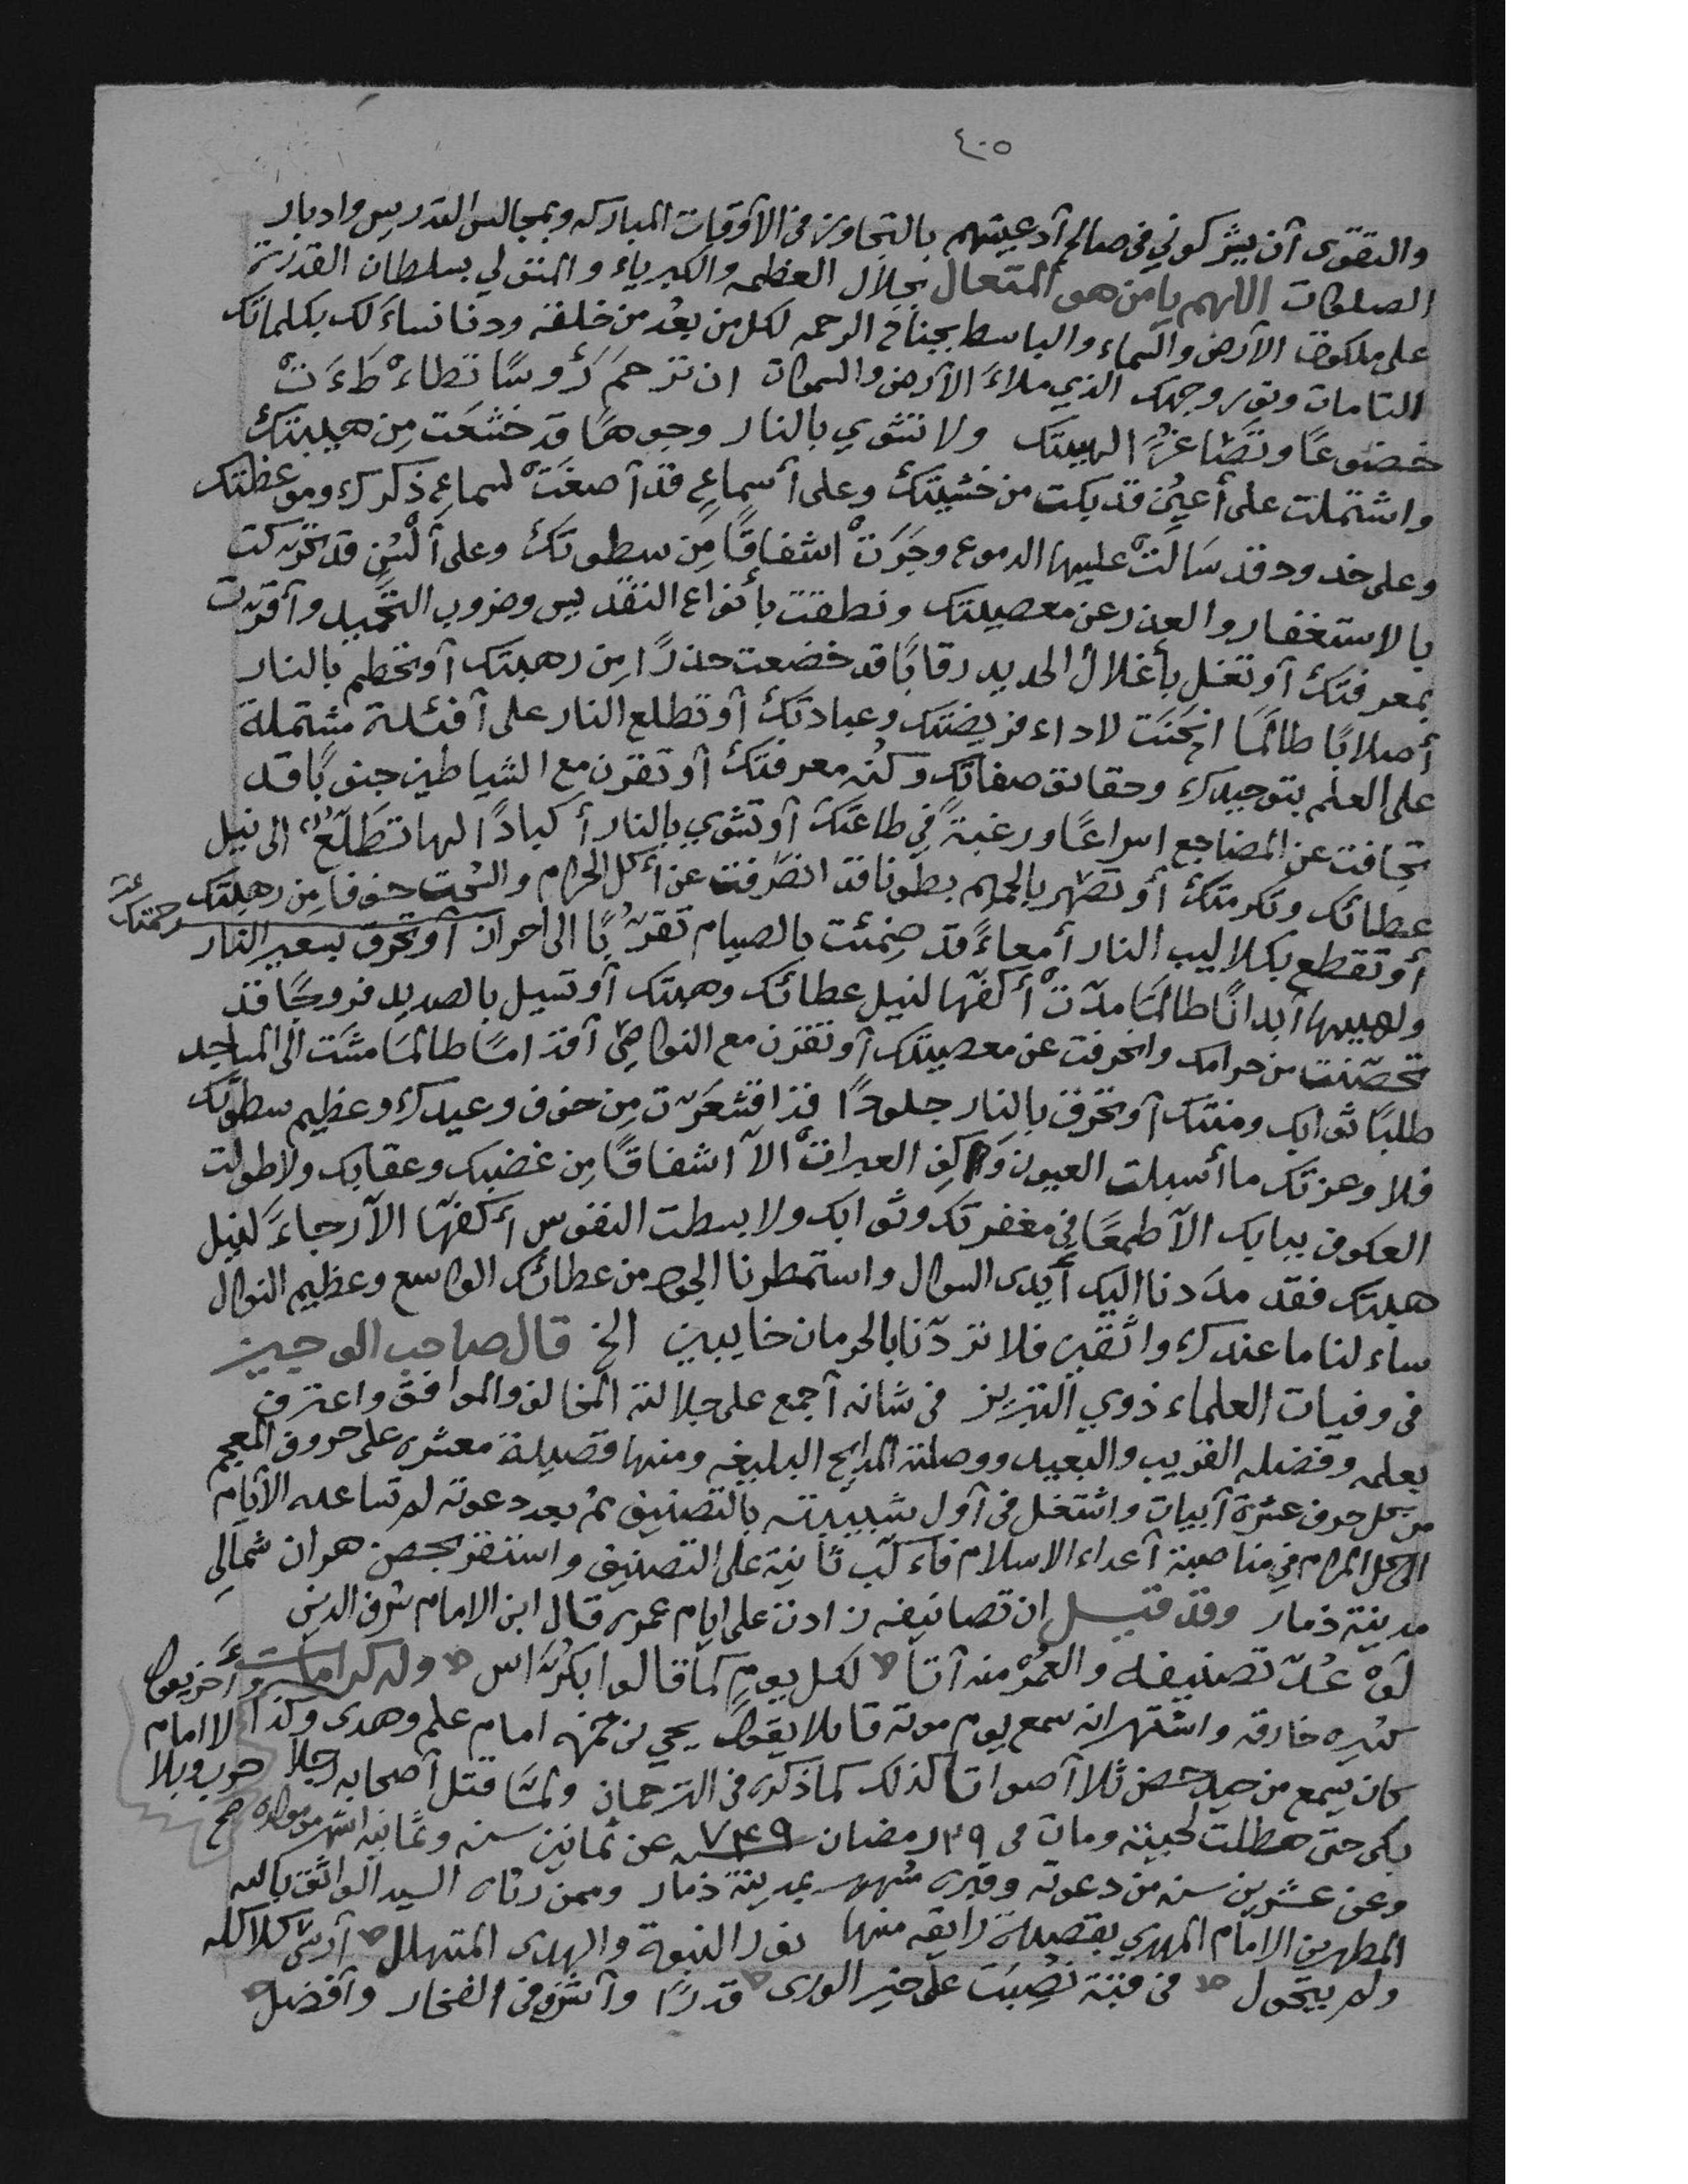 ٤٠٥
والتقوى أن يشركوني في صالح أدعيتهم بالتجاوز في الأوقات المباركه وبمجالس التدريس وادبار
الصلوات اللهم يا من هو المتعال بجلال العظمه والكبرياء و بسلطان القدرة
على ملكوت الأرض والسماء والباسط بجناح الرحمه لكل من بعد من خلقه ودنا نساءلك بكلماتك
التامات وبنور وجهك الذي ملاء الأرض والسموات ان ترحم رؤوسًا تطاءطاءت
خضوعًا الهيبتك ولا تشوي بالنار وجوهًا قد خشعت من هيبتك
واشتملت على أعين قد بكت من خشيتك وعلى أسماع قد أصغت لسماع ذكرك وموعظتك
وعلى خدود قد سالت عليها الدموع وجرت اشفاقًا من سطوتك وعلى ألسن قد تحركت
بالاستغفار والعذر عن معصيتك ونطقت بأنواع التقديس وضروب التحميد وأقرت
بمعرفتك أو تغل بأغلال الحديد رقابًا قد خضعت حذرًا من رهبتك أو تحطم بالنار
أصلابًا طالما انحنت لاداء فريضتك وعبادتك أو تطلع النار على أفئدة مشتملة
على العلم بتوحيدك وحقائق صفاتك وكنه معرفتك أو تقرن مع الشياطين جنوبًا قد
تجافت عن المضاجع اسراعًا ورغبةً في طاعتك أو تشوي بالنار أكبادًا لها تطلّع الى نيل
عطائك وتكرمتك أو تصهر بالحميم بطونا قد انصرفت عن أكل الحرام والسحت خوفا من رهبتك
أو تقطع بكلاليب النار أمعاءً قد ضمئت بالصيام تقربًا الى احراز رحمتك أو تحرق بسعير النار
ولهيبها أبدانًا طالما مدّت أكفّها لنيل عطائك وهبتك أو تسيل بالصديد فروجًا قد
تحصّنت من حرامك وانحرفت عن معصيتك أو تقرن مع النواصي أقدامًا طالما مشت الى المساجد
طلبًا ثوابك ومنتك أو تحرق بالنار جلودًا قد اقشعرّت من خوف وعيدك وعظيم سطوتك
فلا وعزتك ما أسبلت العيون العبرات الا اشفاقًا من غضبك وعقابك ولا طولت
العكوف ببابك الا طمعًا في مغفرتك وثوابك ولا بسطت النفوس أكفّها الا رجاءً لنيل
هبتك فقد مددنا اليك أيدى السوال واستمطرنا الجود من عطائك الواسع وعظيم النوال
ساء لنا ما عندك واثقين فلا تردّنا بالحرمان خايبين الخ قال صاحب الوجيز
في وفيات العلماء ذوي التبريز في شانه أجمع على جلالته المخالف والموافق واعترف
بعلمه وفضله القريب والبعيد ووصلته المدايح البليغه ومنها قصيدة معشره على حروف المعجم
من كل حرف عشرة أبيات واشتغل في أول شبيبته بالتصنيف ثم بعد دعوته لم تساعده الأيام
الى كل المرام في مناصبة أعداء الاسلام فاءكب ثانية على التصنيف واستقر بحصن هران شمالي
مدينة ذمار وقد قيل ان تصانيفه زادت على ايام عمره قال ابن الامام شرف الدين
لو عُدّ تصنيفه والعمر منه أتا لكل يوم كما قالوا بكرّاس وله كرامات
كثيره خارقه واشتهر انه سمع يوم موته قايلا يقول يحي بن حمزه امام علم وهدى وأخر يقول
كان يسمع من حيد حصن ثلا أصواتا كذلك كما ذكره في الترجمان ولما قتل أصحابه رجلا وكذا لا امام حرب وبلا
بكى حتى هطلت لحيته ومات في ٢٩ رمضان سنه ٧٤٩ عن ثمانين سنه وثمانيه اشهر من مولده صح
وعن عشرين سنه من دعوته وقبره مشهور بمدينة ذمار وممن رثاه السيد الواثق بالله
المطهر بن الامام المهدي بقصيدة رايقه منها نور النبوة والهدى المتهلل أرسى كلاكله
ولم يتحول في فتية نصبت على خير الورى قدرًا وأشرف في الفخار وأفضل